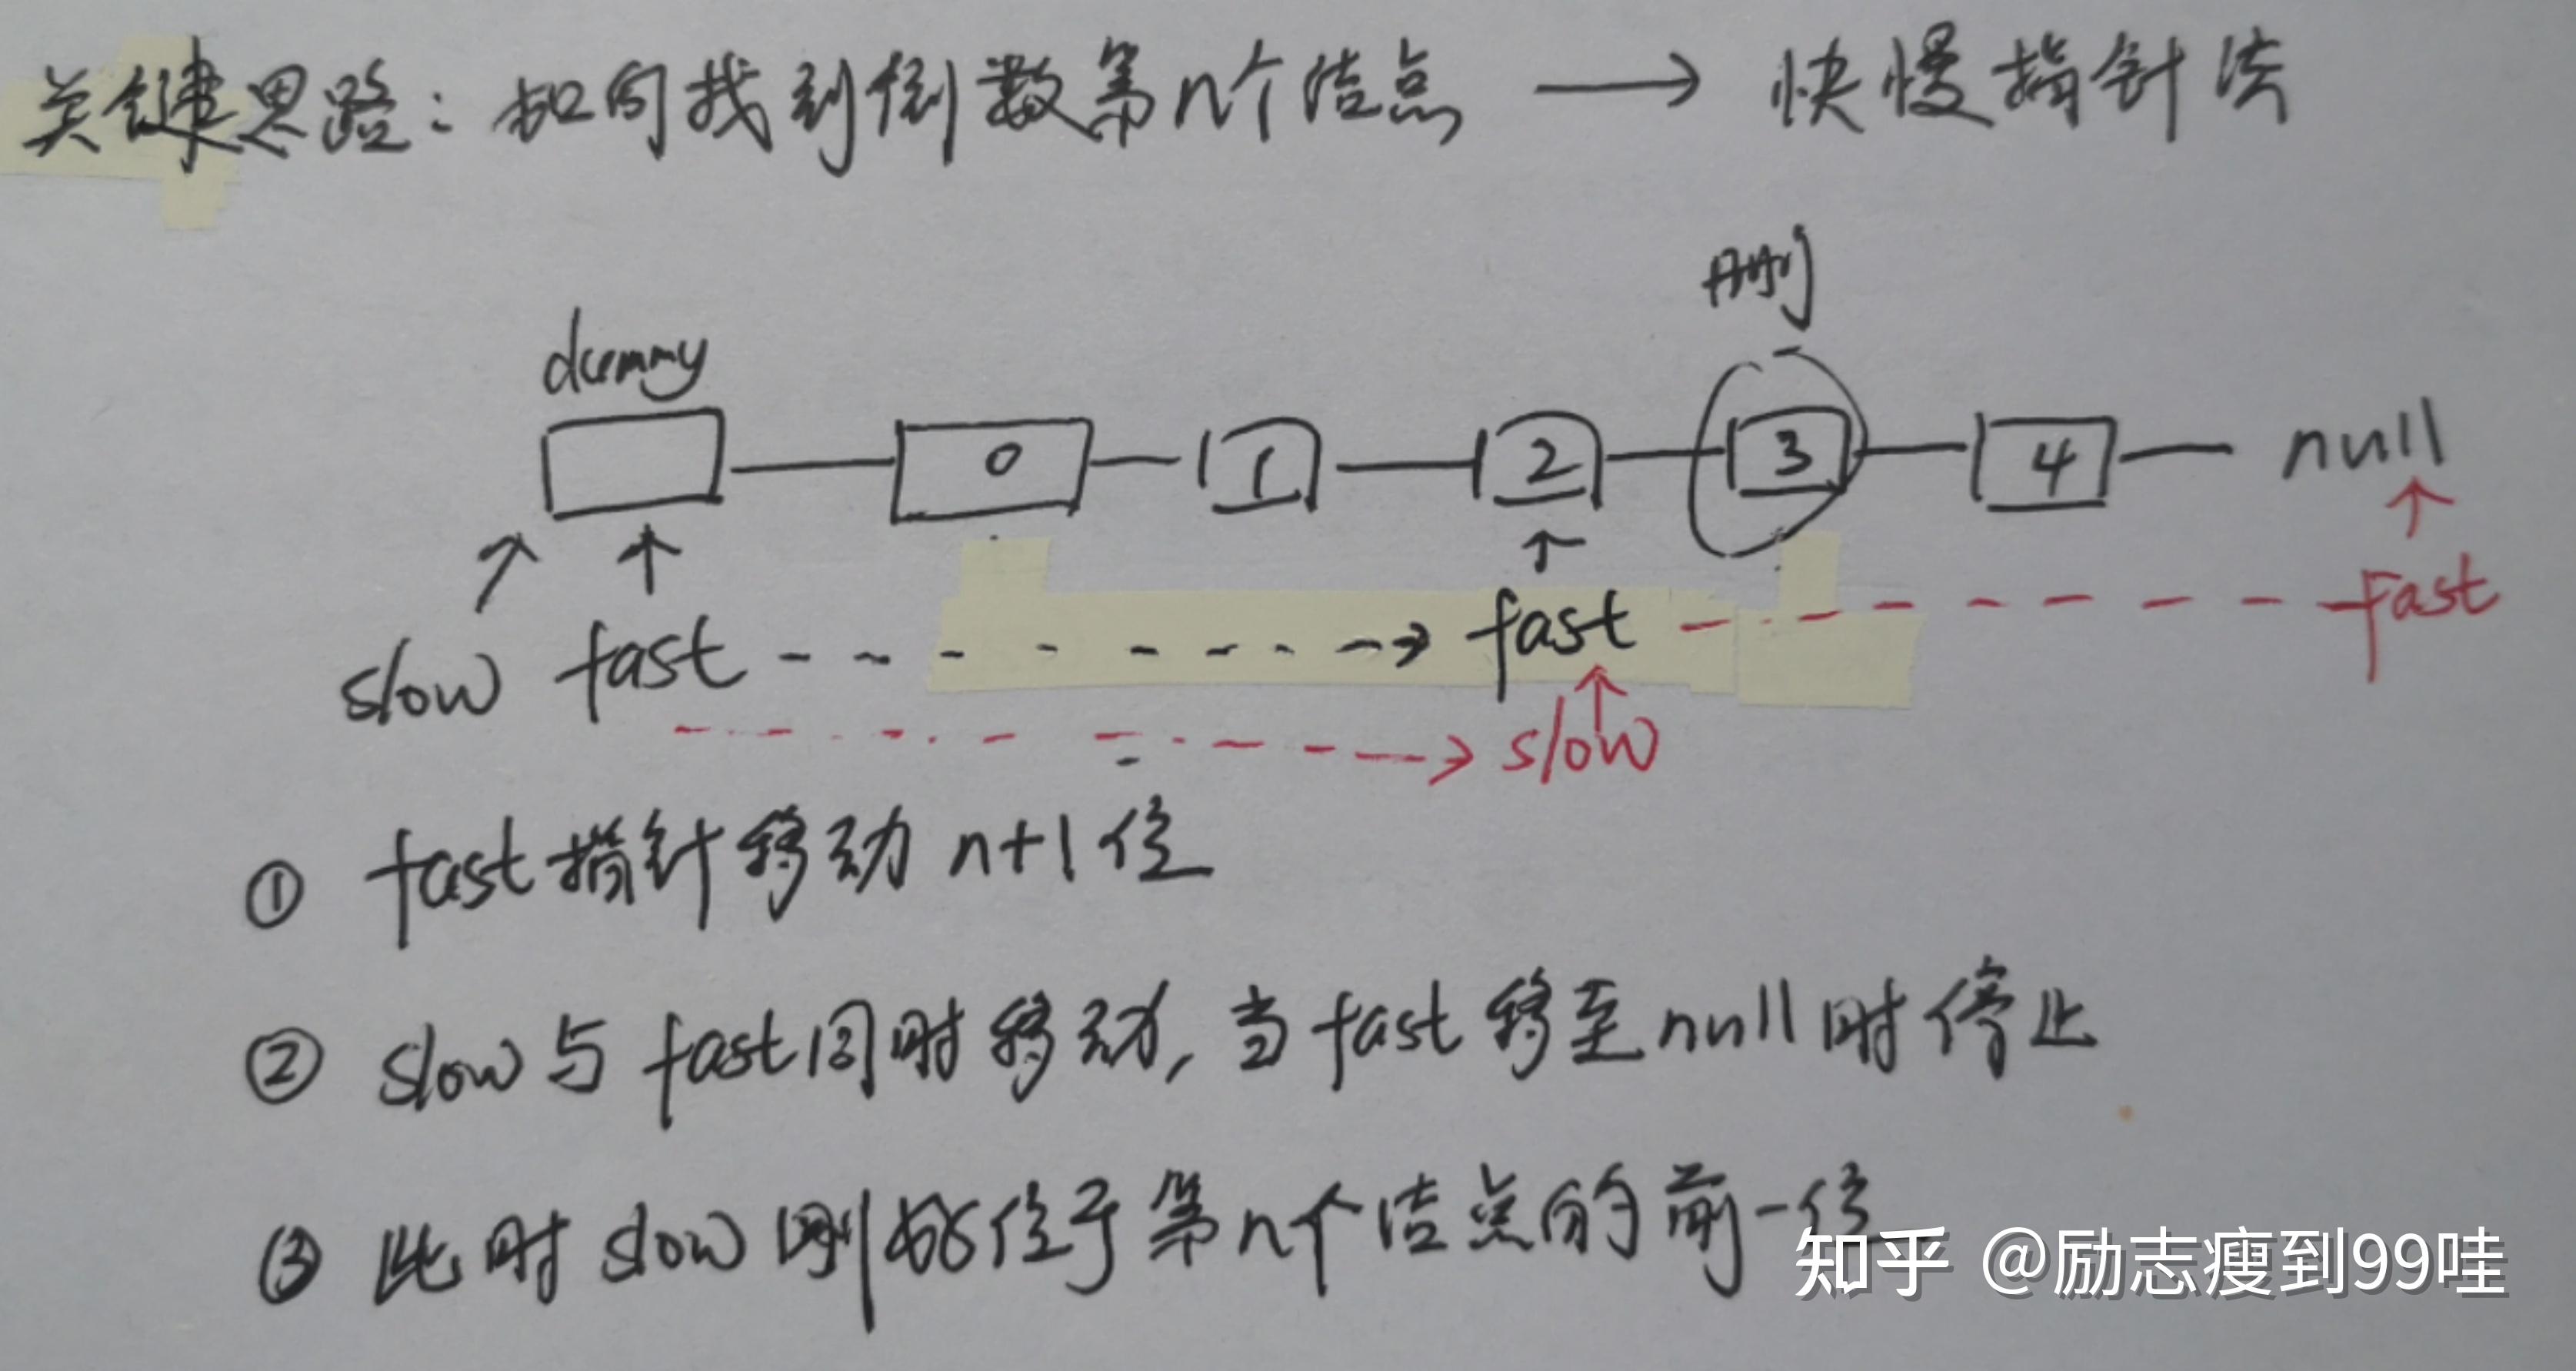 关键思路：如何找到倒数第n个结点 → 快慢指针法
删
dummy
0 1 2 3 4 null
slow fast fast fast
slow
① fast指针移动 n+1位
② slow与fast同时移动，当fast移至null时停止
③ 此时slow刚好位于第n个结点的前一位
知乎 @励志瘦到99哇